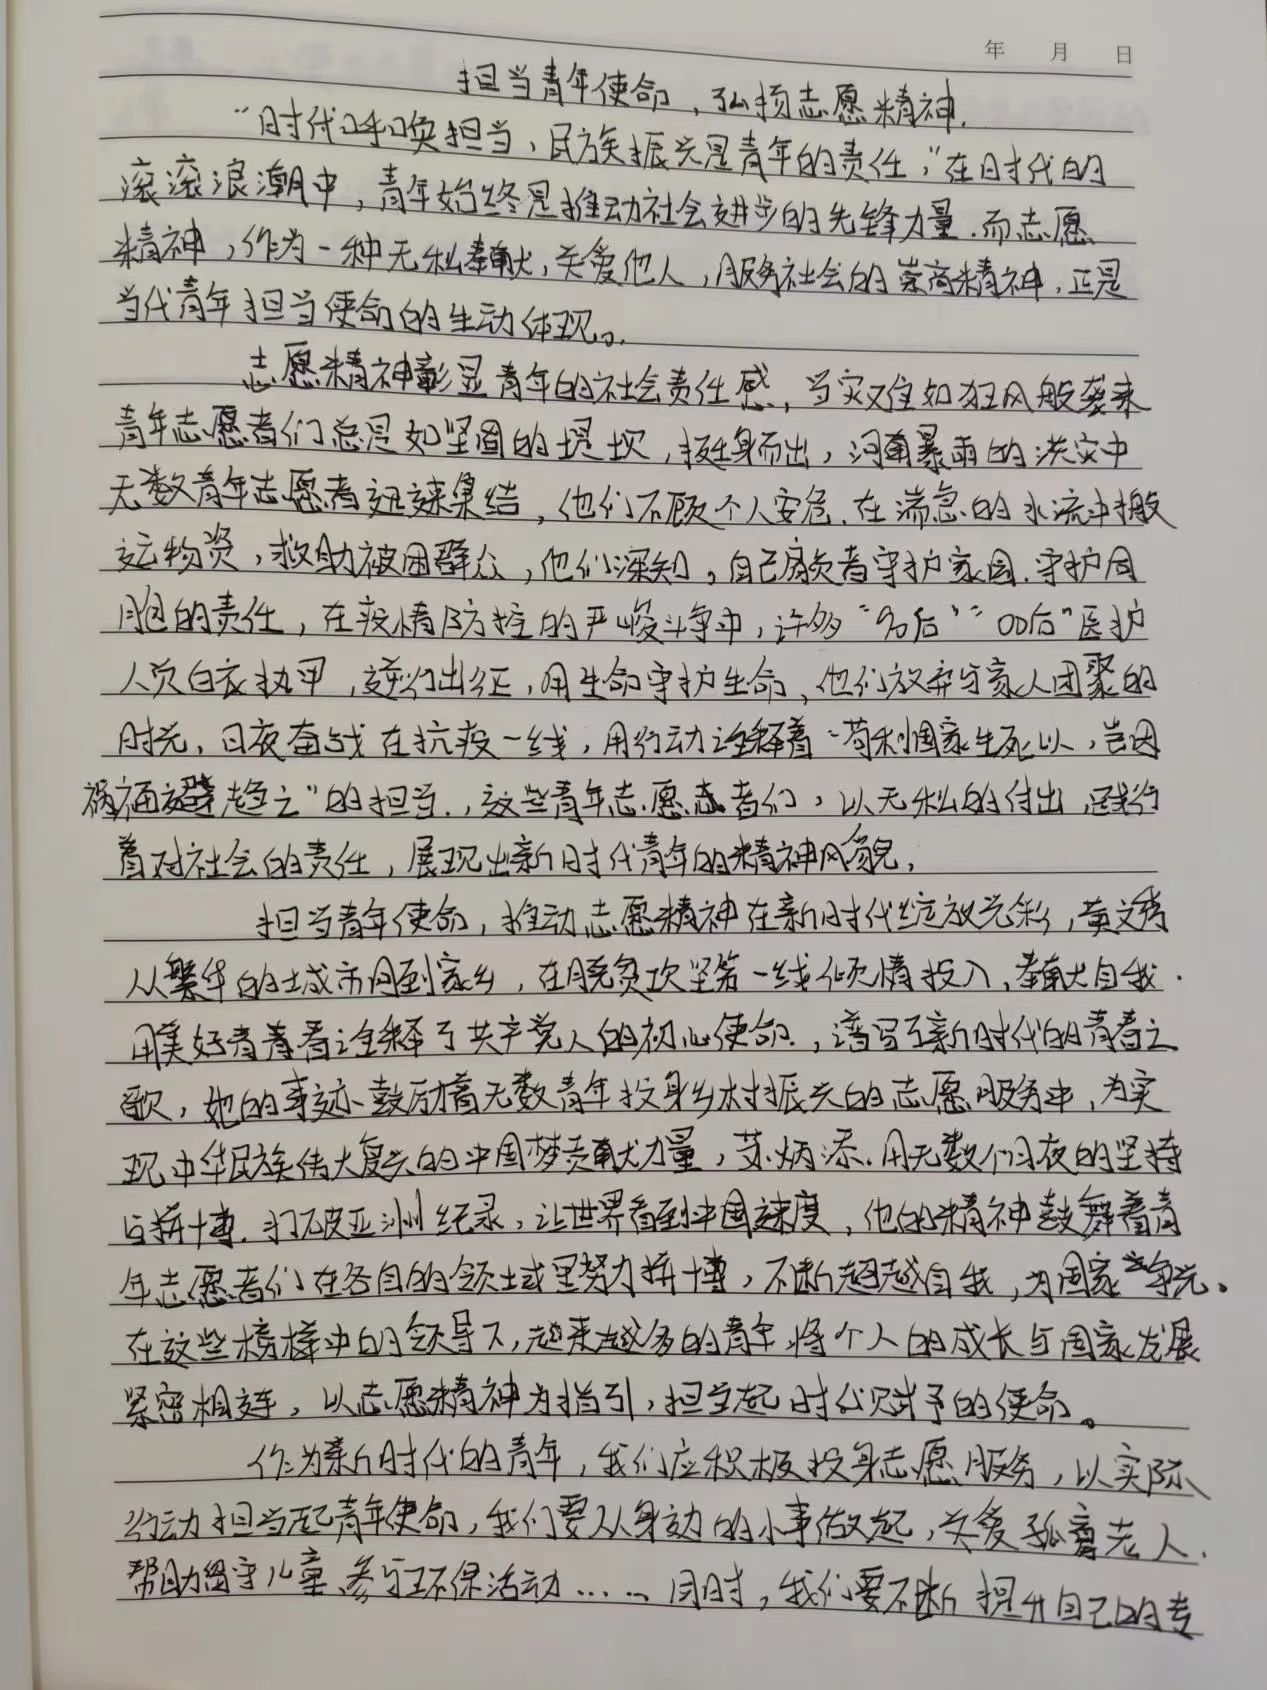 年 月 日
担当青年使命，弘扬志愿精神.
“时代呼唤担当，民族振兴是青年的责任，”在时代的
滚滚浪潮中，青年始终是推动社会进步的先锋力量.而志愿
精神，作为一种无私奉献，关爱他人，服务社会的崇高精神.正是
当代青年担当使命的生动体现。
志愿精神彰显青年的社会责任感，当灾难如狂风般袭来
青年志愿者们总是如坚固的堤坝，挺身而出，河南暴雨的洪灾中
无数青年志愿者迅速集结，他们不顾个人安危.在湍急的水流中搬
运物资，救助被困群众，他们深知，自己肩负着守护家园.守护同
胞的责任，在疫情防控的严峻斗争中，许多“90后”“00后”医护
人员白衣执甲，逆行出征，用生命守护生命，他们放弃与家人团聚的
时光，日夜奋战在抗疫一线，用行动诠释着“苟利国家生死以，岂因
祸福避趋之”的担当.，这些青年志愿者们，以无私的付出，践行
着对社会的责任，展现出新时代青年的精神风貌，
担当青年使命，推动志愿精神在新时代绽放光彩，黄文秀
从繁华的城市回到家乡，在脱贫攻坚第一线倾情投入，奉献自我.
用美好青春诠释了共产党人的初心使命.，谱写了新时代的青春之
歌，她的事迹鼓励着无数青年投身乡村振兴的志愿服务中，为实
现中华民族伟大复兴的中国梦贡献力量，苏炳添.用无数个日夜的坚持
与拼搏.打破亚洲纪录，让世界看到中国速度，他的精神鼓舞着青
年志愿者们在各自的领域里努力拼搏，不断超越自我，为国家争光。
在这些榜样中的领导下，越来越多的青年将个人的成长与国家发展
紧密相连，以志愿精神为指引，担当起时代赋予的使命。
作为新时代的青年，我们应积极投身志愿服务，以实际
行动担当起青年使命，我们要从身边的小事做起，关爱孤寡老人.
帮助留守儿童、参与环保活动……同时，我们要不断提升自己的专